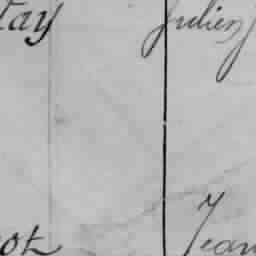 tay Julien
ot Jean